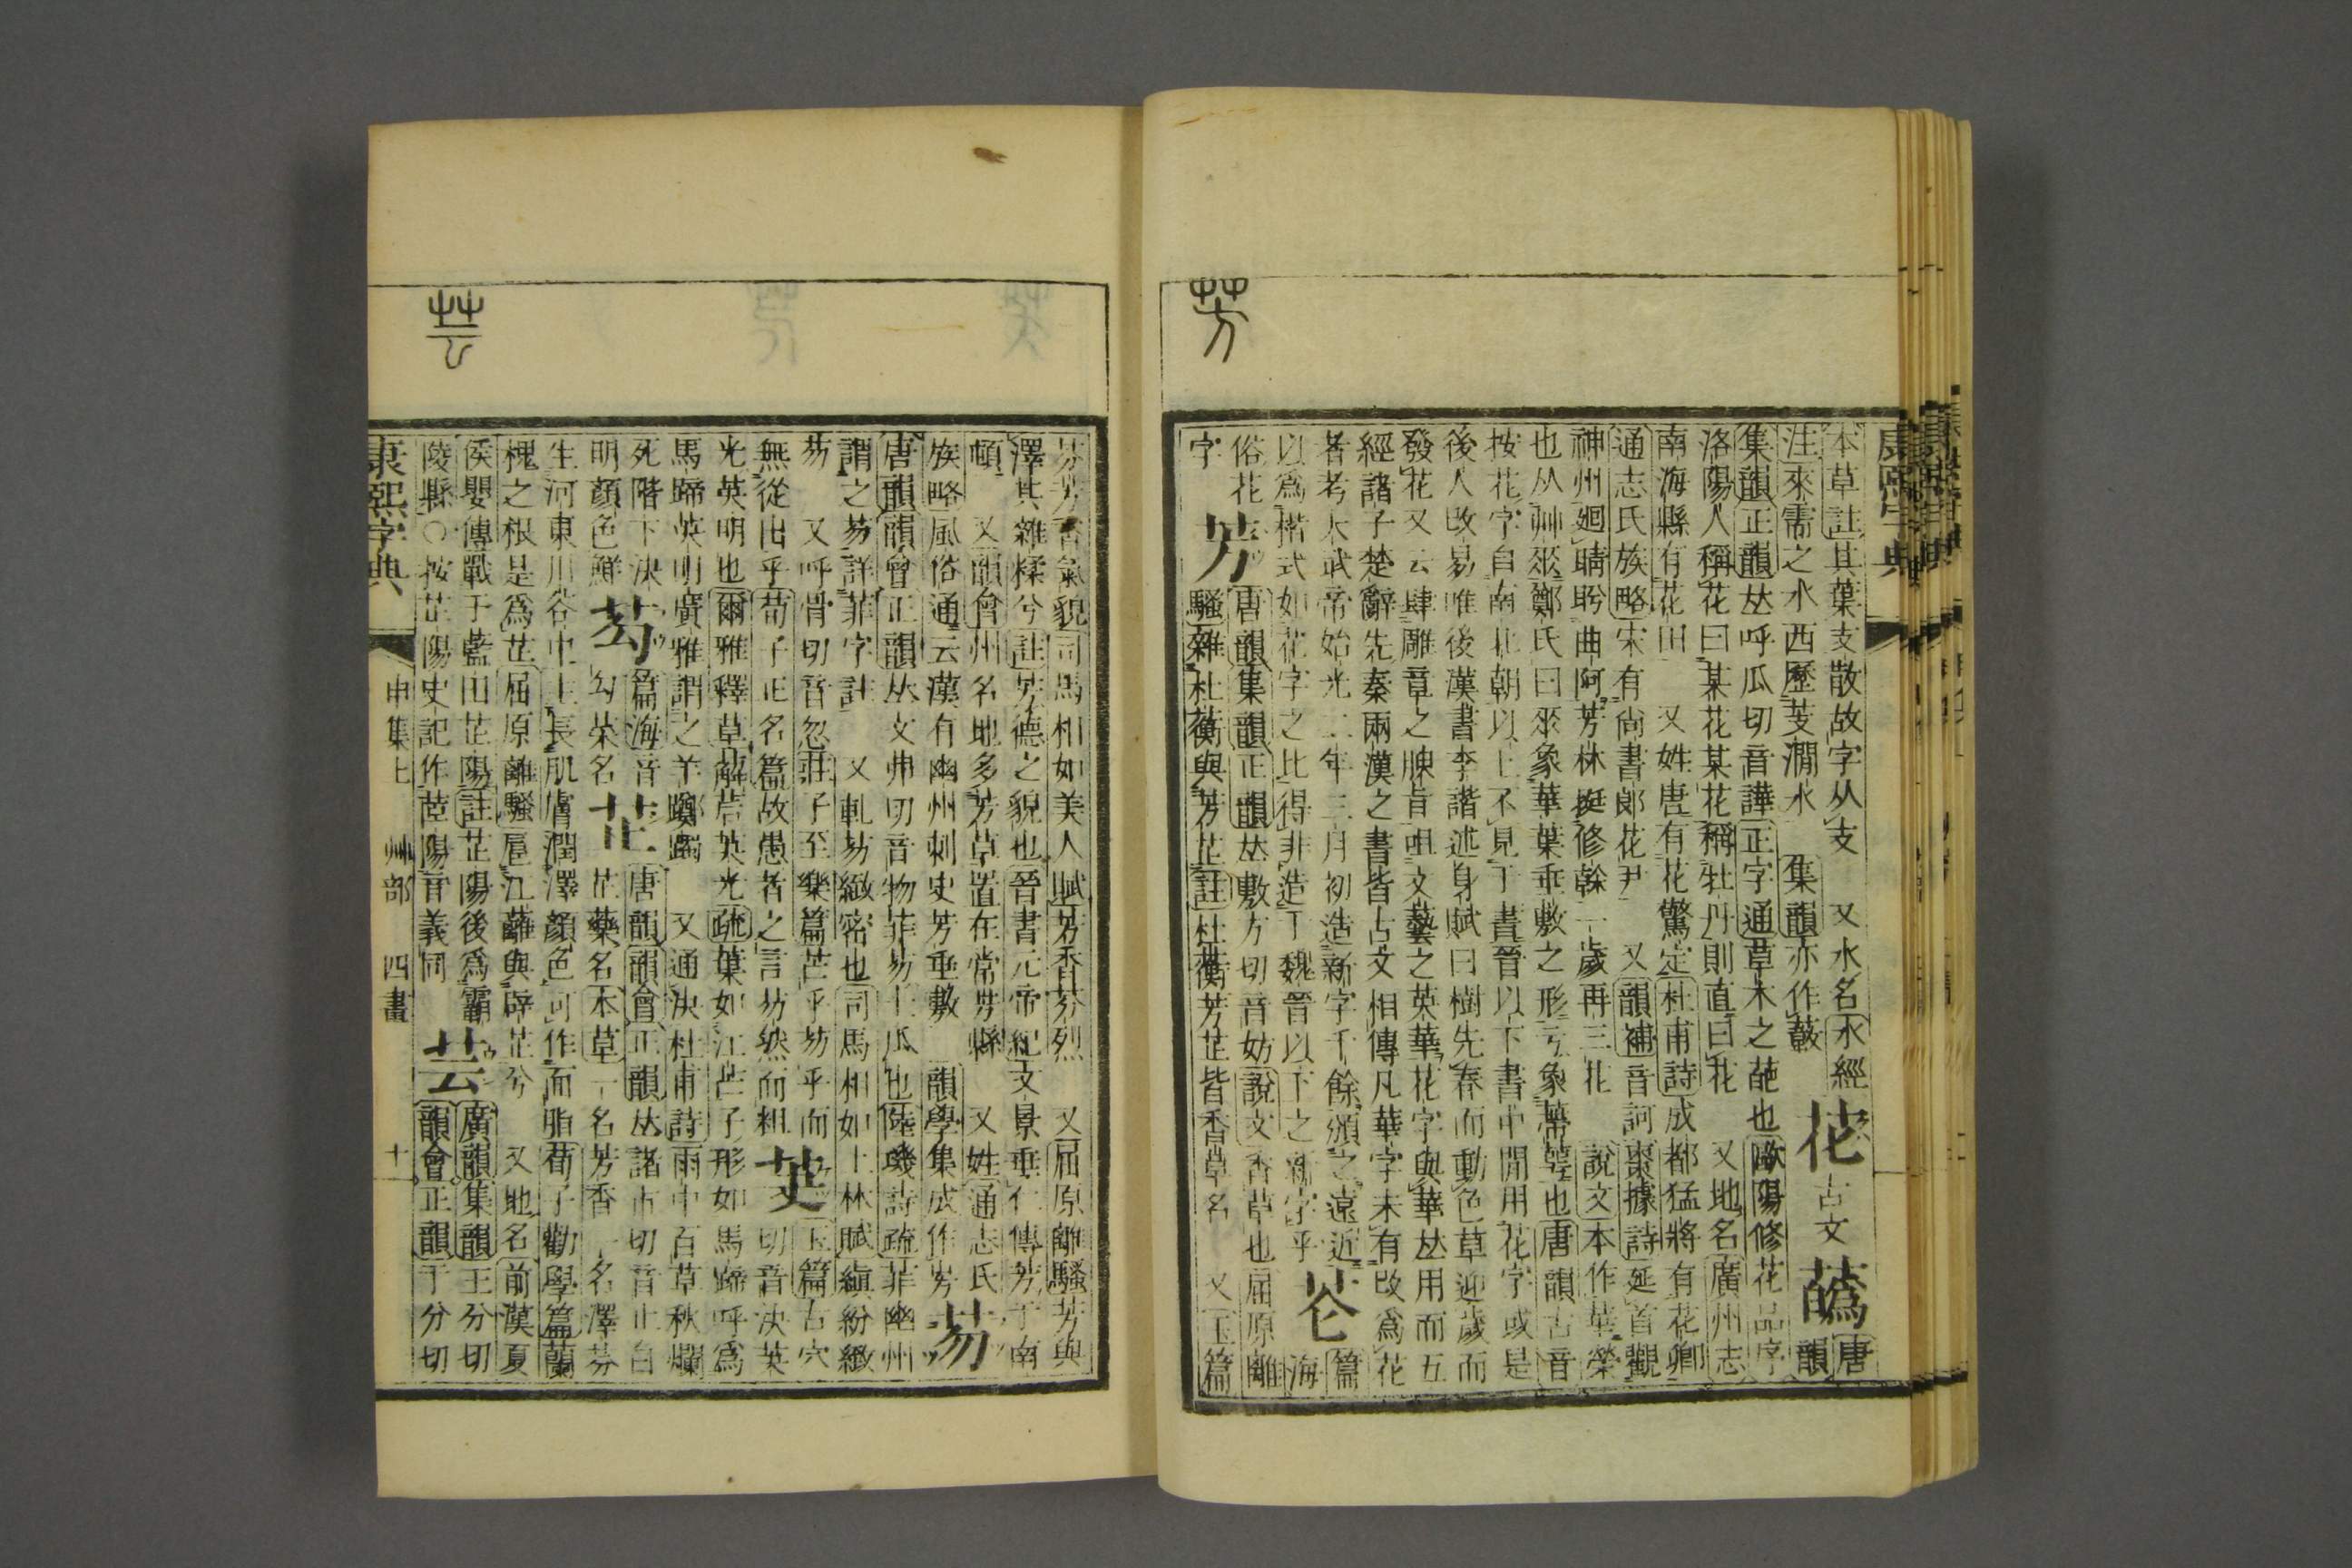 芳
康熙字典
本草註其葉支散故字从支　又水名水經
注來需之水西歷芰澗水　集韻亦作蔎
花 古文 蘤 唐
韻
集韻正韻𠀤呼瓜切音譁正字通草木之葩也歐陽修花品序
洛陽人稱花曰某花某花稱牡丹則直曰花　又地名廣州志
南海縣有花田　又姓唐有花驚定杜甫詩成都猛將有花卿
通志氏族略宋有尚書郞花尹　又韻補音訶棗據詩延首觀
神州廻睛盻曲阿芳林挺修榦一歲再三花　說文本作華榮
也从艸𠌶鄭氏曰𠌶象華葉垂敷之形亏象蔕萼也唐韻古音
按花字自南北朝以上不見于書晉以下書中閒用花字或是
後人改易唯後漢書李諧述身賦曰樹先春而動色草迎歲而
發花又云肆雕章之腴旨咀文藝之英華花字與華𠀤用而五
經諸子楚辭先秦兩漢之書皆古文相傳凡華字未有改爲花
者考太武帝始光二年三月初造新字千餘頒之遠近
以爲楷式如花字之比得非造于魏晉以下之新字乎
芲 篇
海
俗花
字
芳
唐韻集韻正韻𠀤敷方切音妨說文香草也屈原離
騷雜杜蘅與芳芷註杜蘅芳芷皆香草名　又玉篇
芸
芬芳香氣貌司馬相如美人賦芳香芬烈　又屈原離騷芳與
澤其雜糅兮註芳德之貌也晉書元帝紀文景垂仁傳芳于南
頓　又韻會州名地多芳草置在常芳縣　又姓通志氏
族略風俗通云漢有幽州刺史芳垂敷　韻學集成作芳
芴
唐韻韻會正韻𠀤文弗切音物菲芴土瓜也陸璣詩疏菲幽州
謂之芴詳菲字註　又軋芴緻密也司馬相如上林賦縝紛緻
芴　又呼骨切音忽莊子至樂篇芒乎芴乎而
無從出乎荀子正名篇故愚者之言芴然而粗
芵
玉篇古穴
切音決芵
光芵明也爾雅釋草薢茩芵光疏葉如江芒子形如馬蹄呼爲
馬蹄芵明廣雅謂之羊躑躅　又通決杜甫詩雨中百草秋爛
死階下決
明顏色鮮
芶
篇海音
勾菜名
芷
唐韻韻會正韻𠀤諸市切音止白
芷藥名本草一名芳香一名澤芬
生河東川谷中土長肌膚潤澤顏色可作面脂荀子勸學篇蘭
槐之根是爲芷屈原離騷扈江蘺與辟芷兮　又地名前漢夏
侯嬰傳戰于藍田芷陽註芷陽後爲霸
陵縣○按芷陽史記作茝陽音義同
芸
廣韻集韻王分切
韻會正韻于分切
康熙字典　申集上　艸部　四畫　十